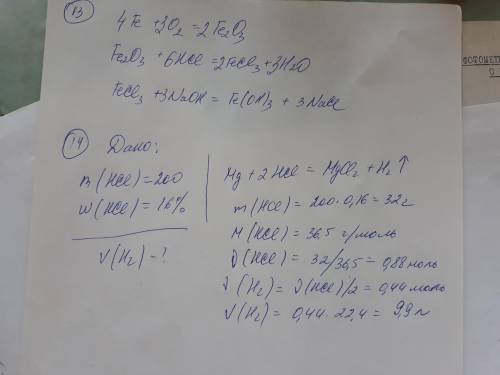 13
4Fe + 3O₂ = 2Fe₂O₃
Fe₂O₃ + 6HCl = 2FeCl₃ + 3H₂O
FeCl₃ + 3NaOH = Fe(OH)₃ + 3NaCl
14 Дано:
m(HCl) = 200
W(HCl) = 16%
V(H₂) - ?
Mg + 2HCl = MgCl₂ + H₂ ↑
m(HCl) = 200 · 0,16 = 32 г
M(HCl) = 36,5 г/моль
ν(HCl) = 32/36,5 = 0,88 моль
ν(H₂) = ν(HCl)/2 = 0,44 моль
V(H₂) = 0,44 · 22,4 = 9,9 л